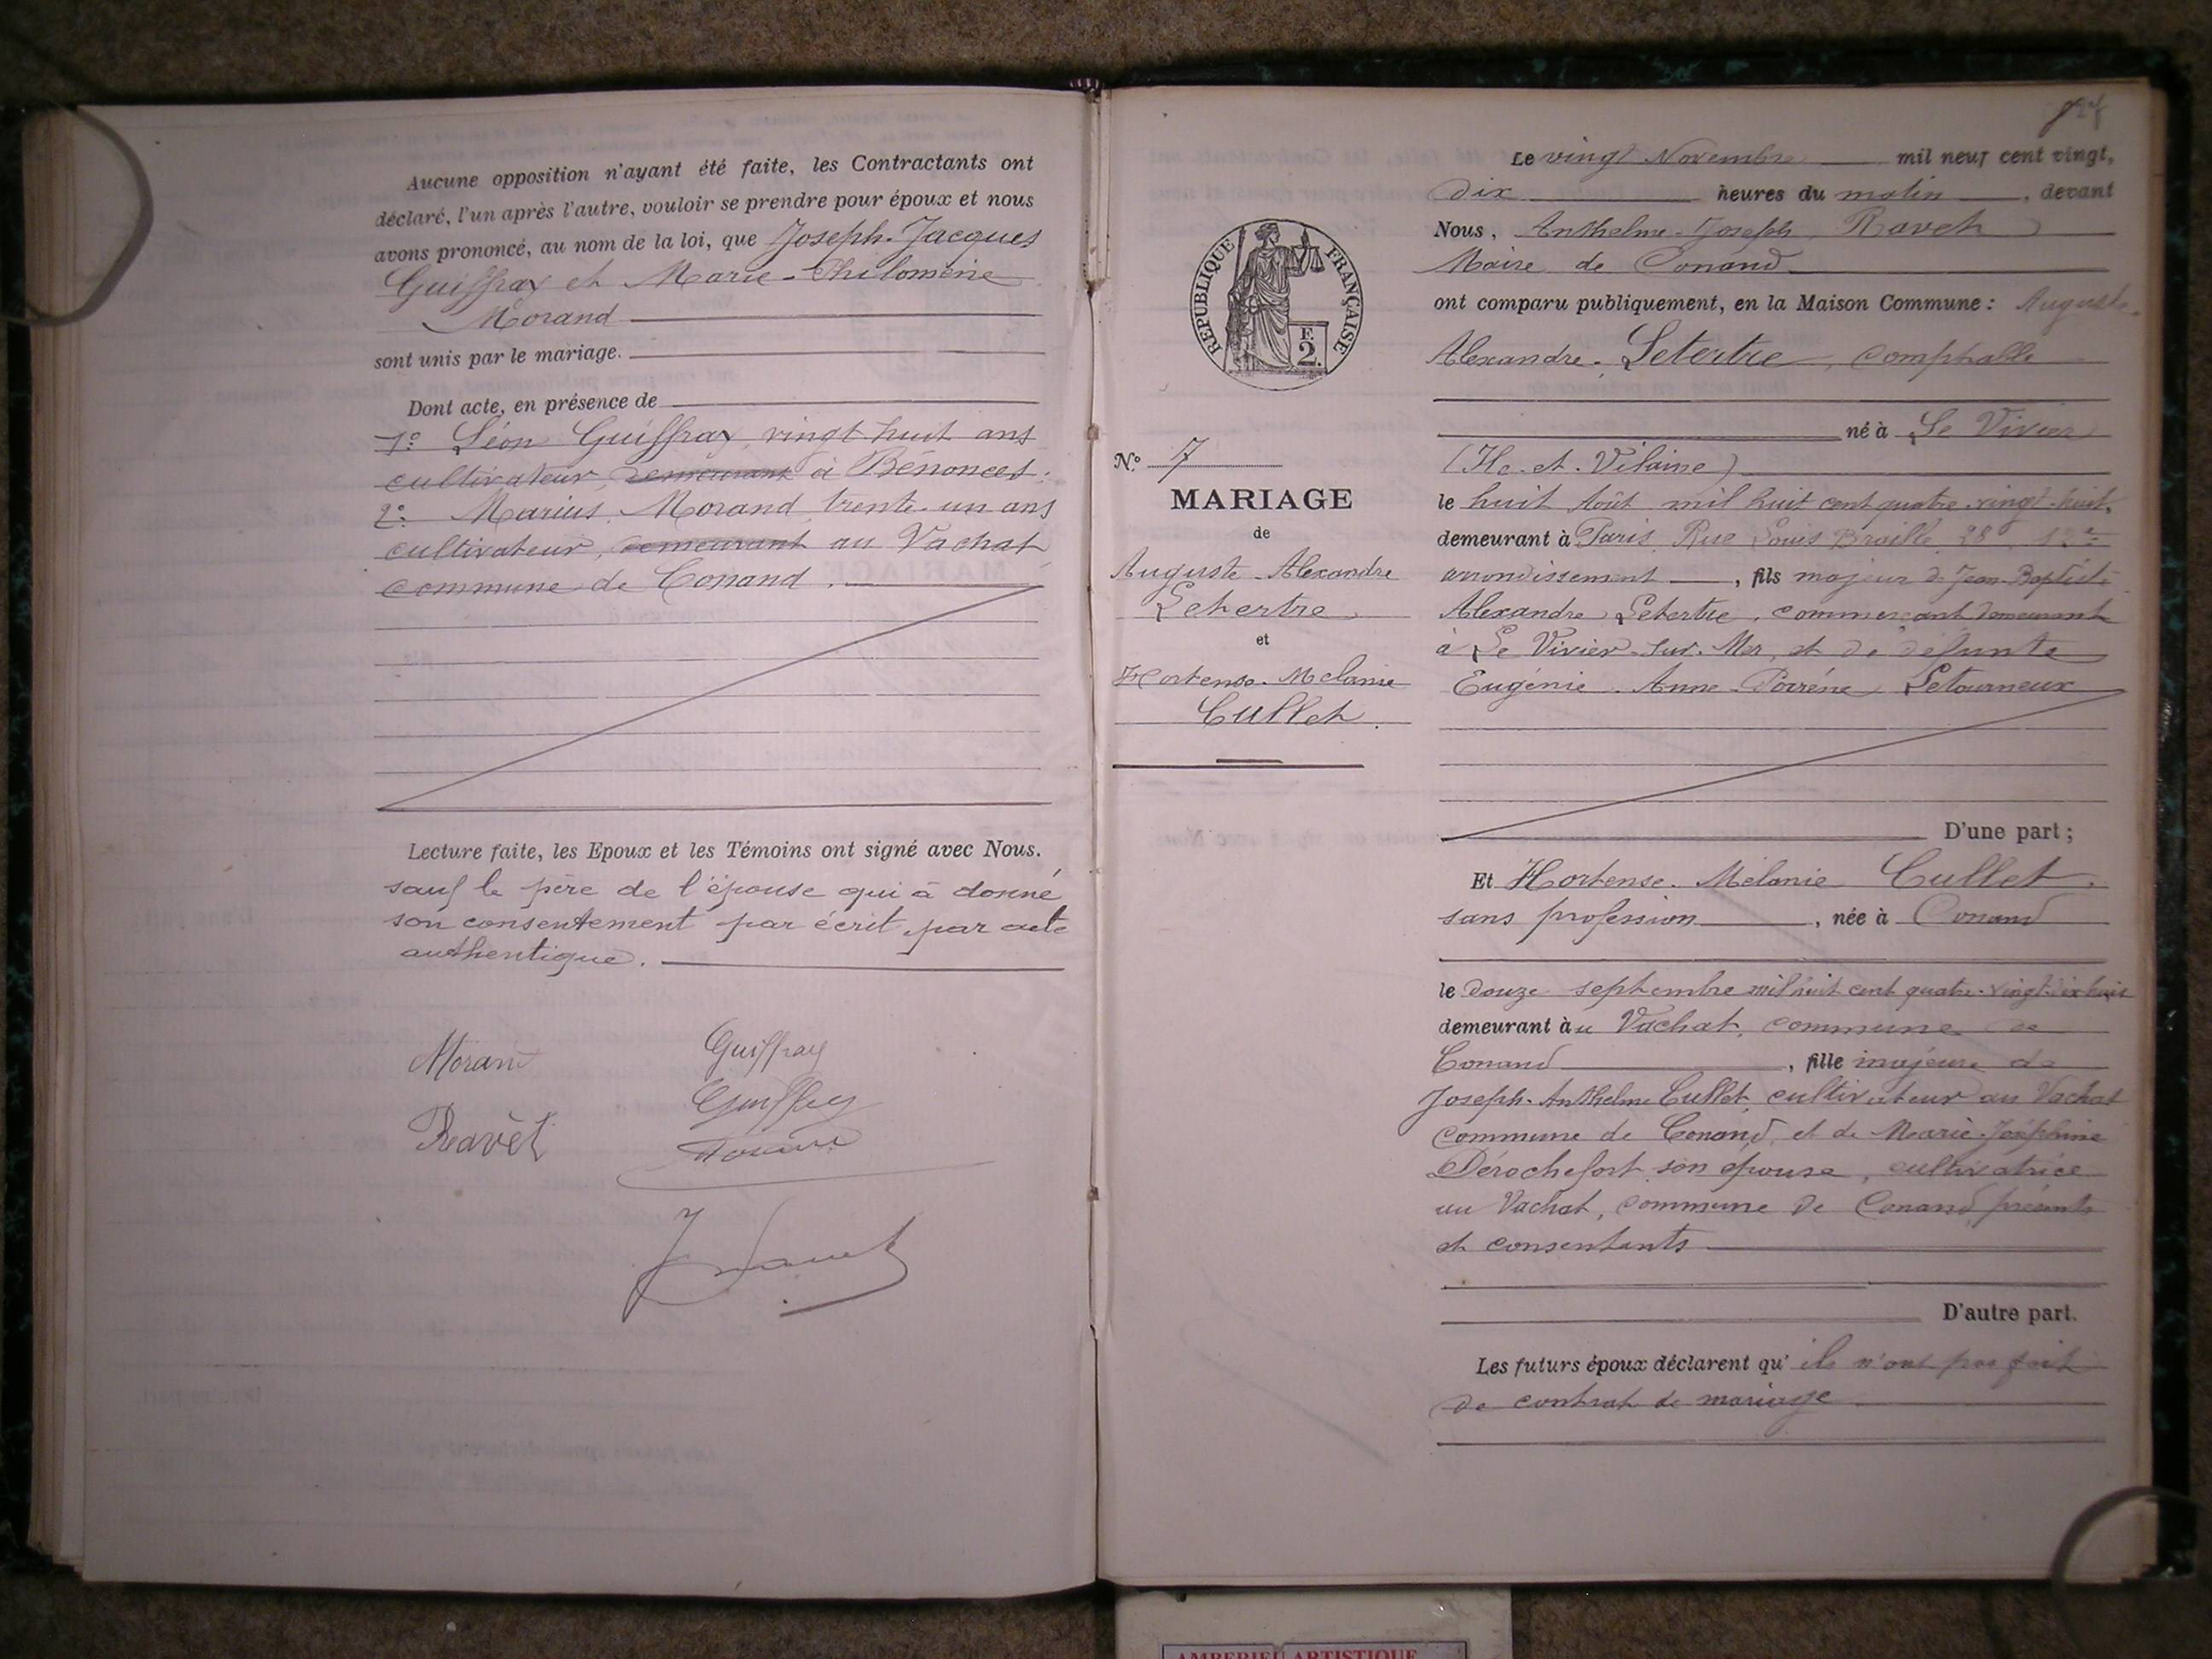 Aucune opposition n'ayant été faite, les Contractants ont
déclaré, l'un après l'autre, vouloir se prendre pour époux et nous
avons prononcé, au nom de la loi, que Joseph-Jacques
Guiffray et Marie-Philomène
Morand
sont unis par le mariage.
Dont acte, en présence de
1º Léon Guiffray vingt huit ans
cultivateur, demeurant à Bénonces:
2º Marius Morand trente-un ans
cultivateur, demeurant au Vachat
commune de Conand.
Lecture faite, les Epoux et les Témoins ont signé avec Nous.
sauf le père de l'épouse qui à donné
son consentement par écrit par acte
authentique.
Guiffray
Ravet
Le vingt Novembre mil neuf cent vingt,
dix heures du matin, devant
Nous, Anthelme-Joseph Ravet
Maire de Conand
ont comparu publiquement, en la Maison Commune: Auguste-
Alexandre-Letertre, comptable
né à Le Vivier
(Ile-et-Vilaine)
le huit Août mil huit cent quatre-vingt-huit,
demeurant à Paris, Rue Louis Braille 28, 12e
arrondissement, fils majeur de Jean-Baptiste
Alexandre Letertre, commerçant demeurant
à Le Vivier-sur-Mer, et de défunte
Eugénie-Anne Letourneux
D'une part;
Et Hortense-Mélanie Cullet,
sans profession, née à Conand
le douze septembre mil huit cent quatre-vingt-dix huit
demeurant àu Vachat, commune de
Conand, fille majeure de
Joseph-Anthelme Cullet, cultivateur au Vachat
commune de Conand, et de Marie-Joséphine
Dérochefort son épouse, cultivatrice
au Vachat, commune de Conand, présents
et consentants
D'autre part.
Les futurs époux déclarent qu'ils n'ont pas fait
de contrat de mariage
RÉPUBLIQUE FRANÇAISE
F.
2.
No 7
MARIAGE
de
Auguste-Alexandre
Letertre
et
Hortense-Mélanie
Cullet.
AMBERIEU ARTISTIQUE